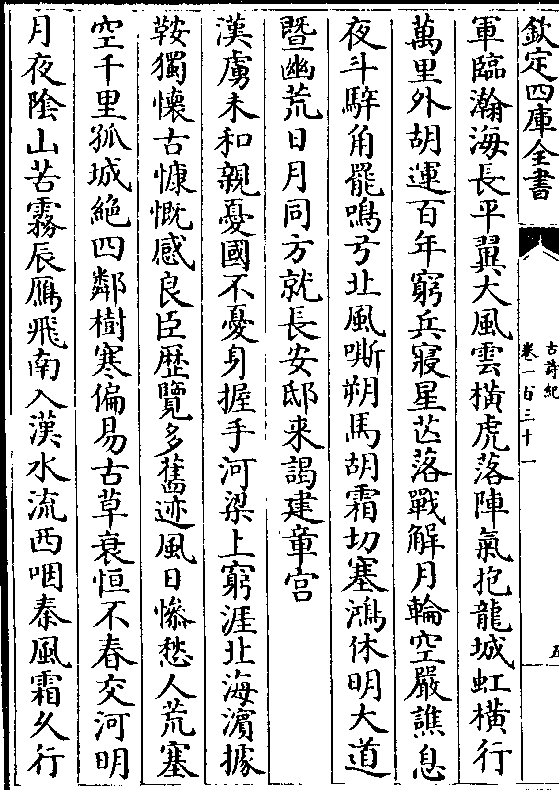 欽定四庫全書
古詩紀
卷一百三十一
五
軍臨瀚海長平翼大風雲橫虎落陣氣抱龍城虹橫行
萬里外胡運百年窮兵寢星芒落戰解月輪空嚴譙息
夜斗騂角罷鳴弓北風嘶朔馬胡霜切塞鴻休明大道
暨幽荒日月同方就長安邸来謁建章宫
漢虜未和親憂國不憂身握手河梁上窮涯北海濵據
鞍獨懐古慷慨感良臣歴覽多舊迹風日慘愁人荒塞
空千里孤城絶四鄰樹寒偏易古草衰恒不春交河明
月夜隂山苦霧辰鴈飛南入漢水流西咽秦風霜久行